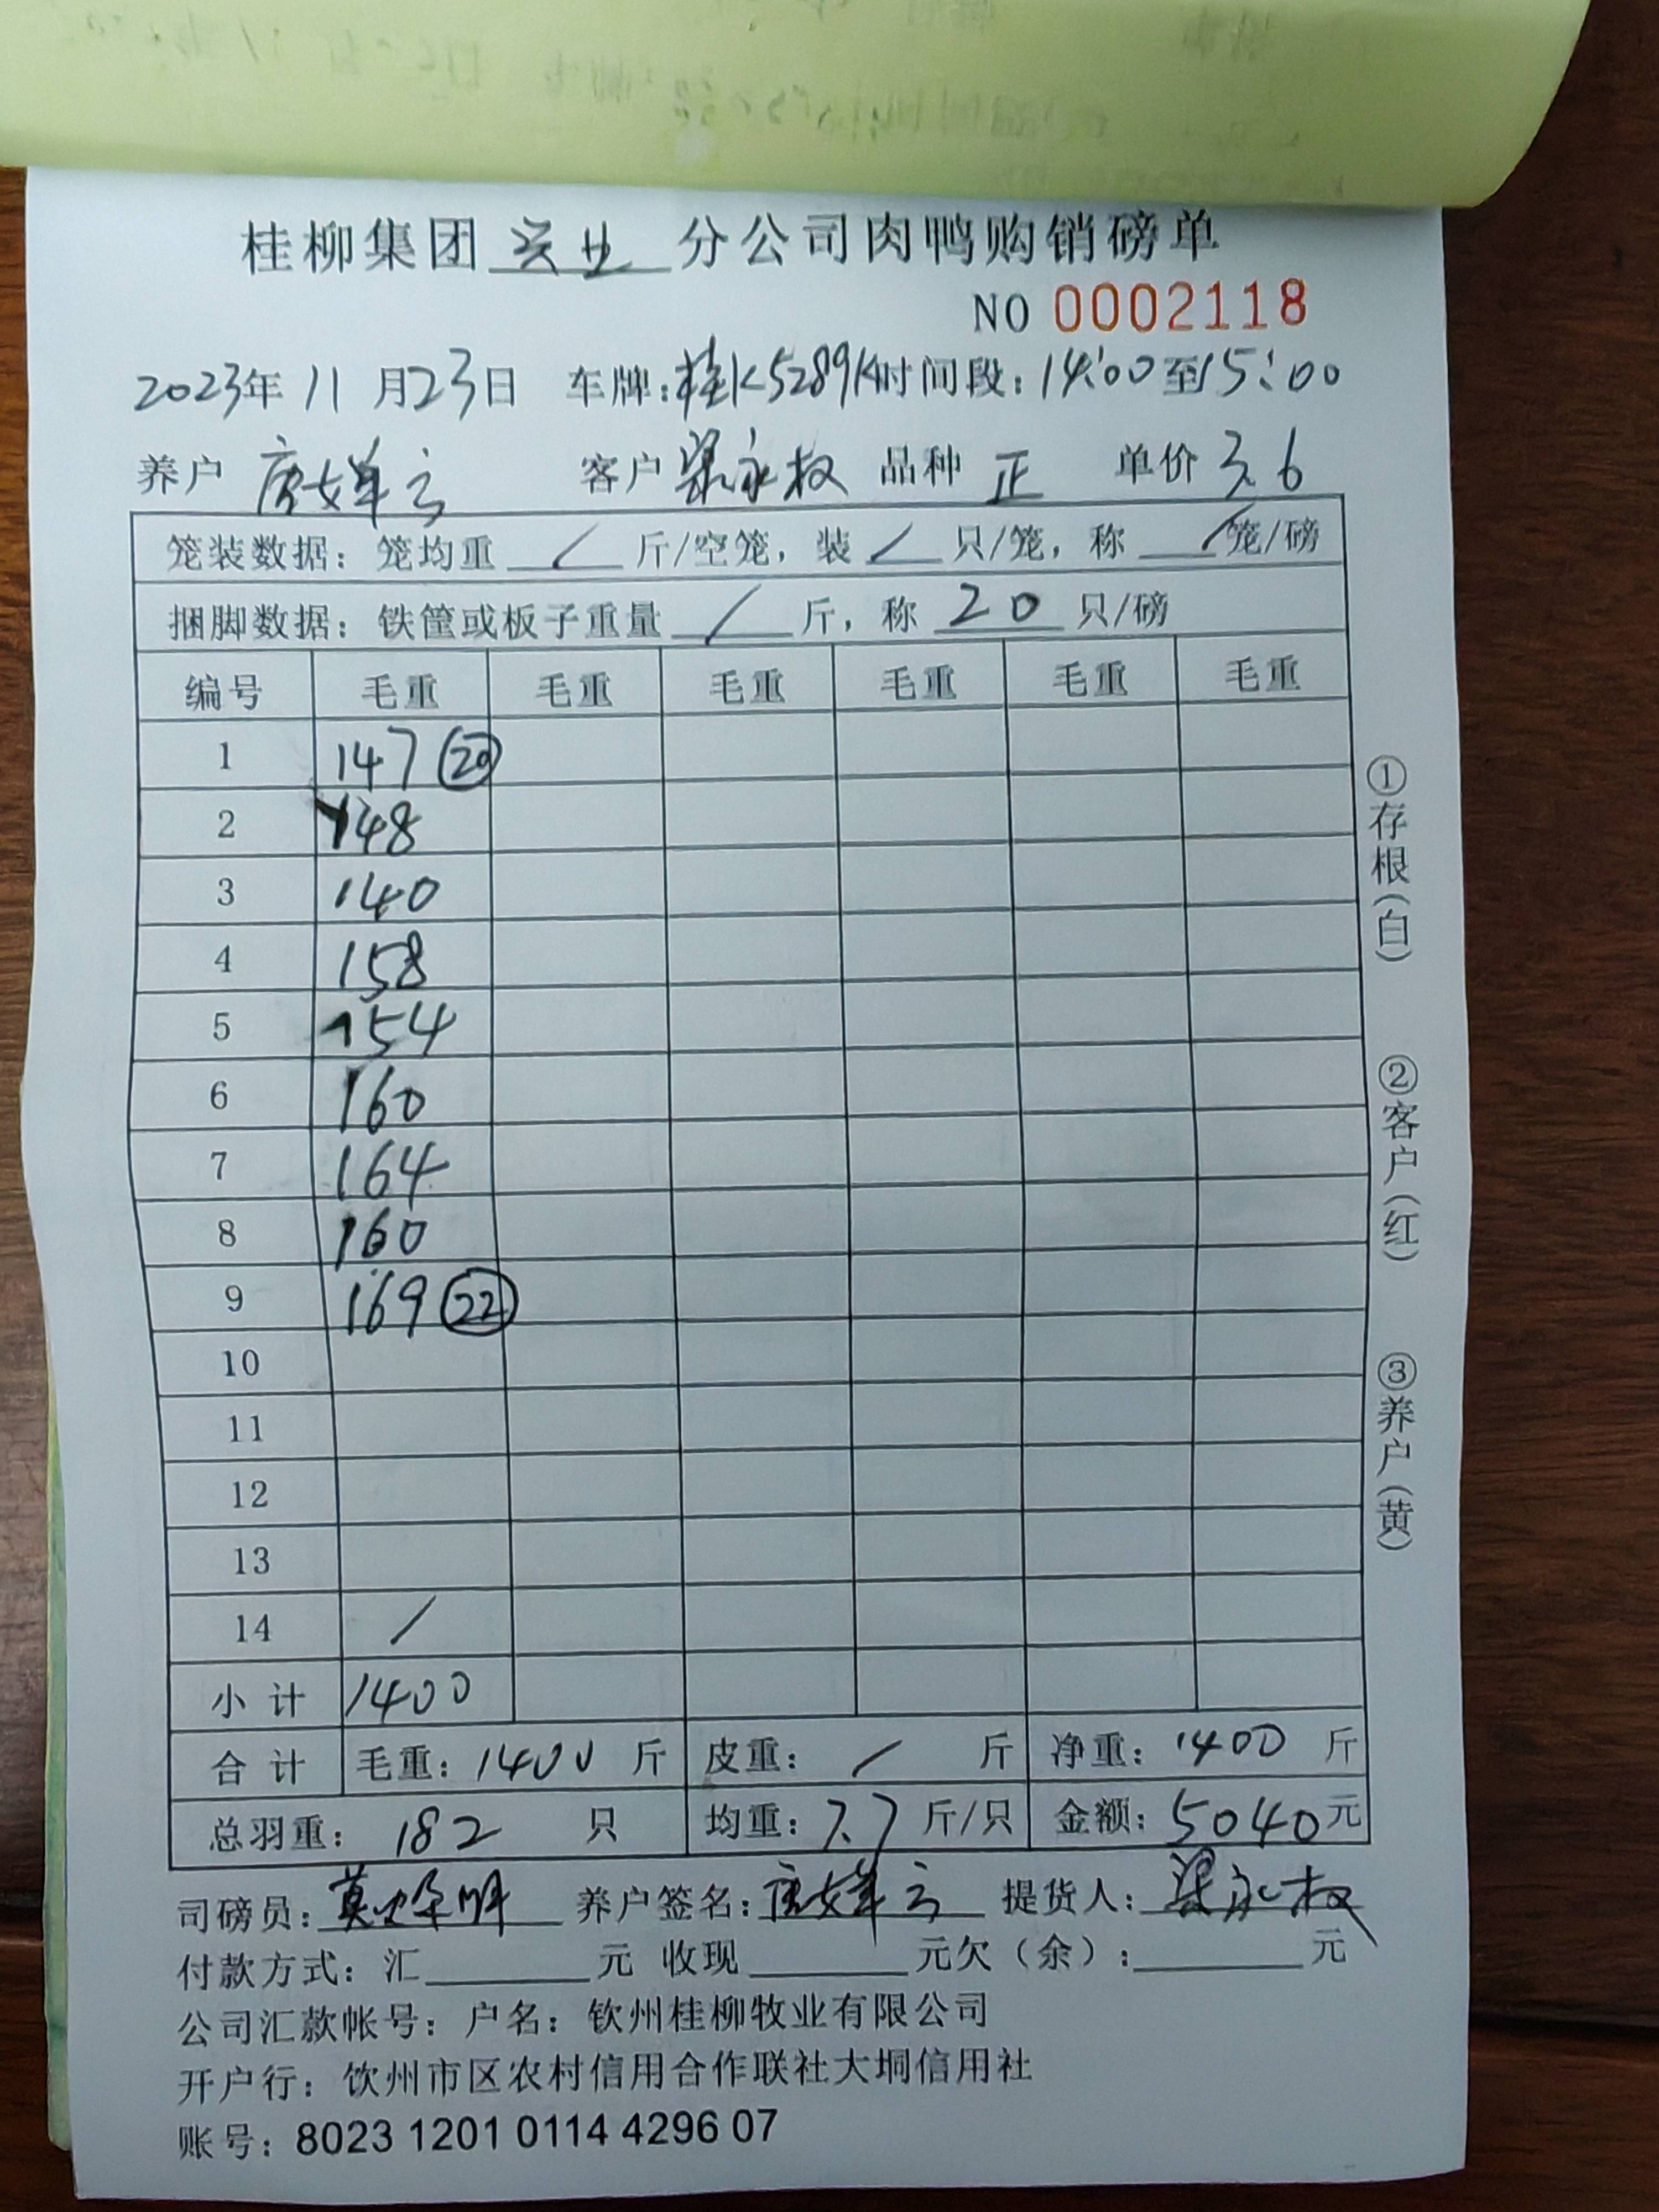 桂柳集团 兴业 分公司肉鸭购销磅单
NO 0002118
2023年 11 月23日 车牌:桂K5289K时间段:14:00至15:00
养户 唐女单云 客户 梁永权 品种 正 单价 3.6
笼装数据: 笼均重 / 斤/空笼, 装 / 只/笼, 称 / 笼/磅
捆脚数据: 铁筐或板子重量 / 斤, 称 20 只/磅
编号 毛重 毛重 毛重 毛重 毛重 毛重
1 147 ⑳
2 148
3 140
4 158
5 154
6 160
7 164
8 160
9 169 ㉒
10
11
12
13
14 /
小计 1400
合计 毛重: 1400 斤 皮重: / 斤 净重: 1400 斤
总羽重: 182 只 均重: 7.7 斤/只 金额: 5040元
司磅员: 养户签名: 提货人: 梁永权
付款方式: 汇 元 收现 元欠(余): 元
公司汇款帐号: 户名: 钦州桂柳牧业有限公司
开户行: 饮州市区农村信用合作联社大垌信用社
账号: 8023 1201 0114 4296 07
①存根(白)
②客户(红)
③养户(黄)